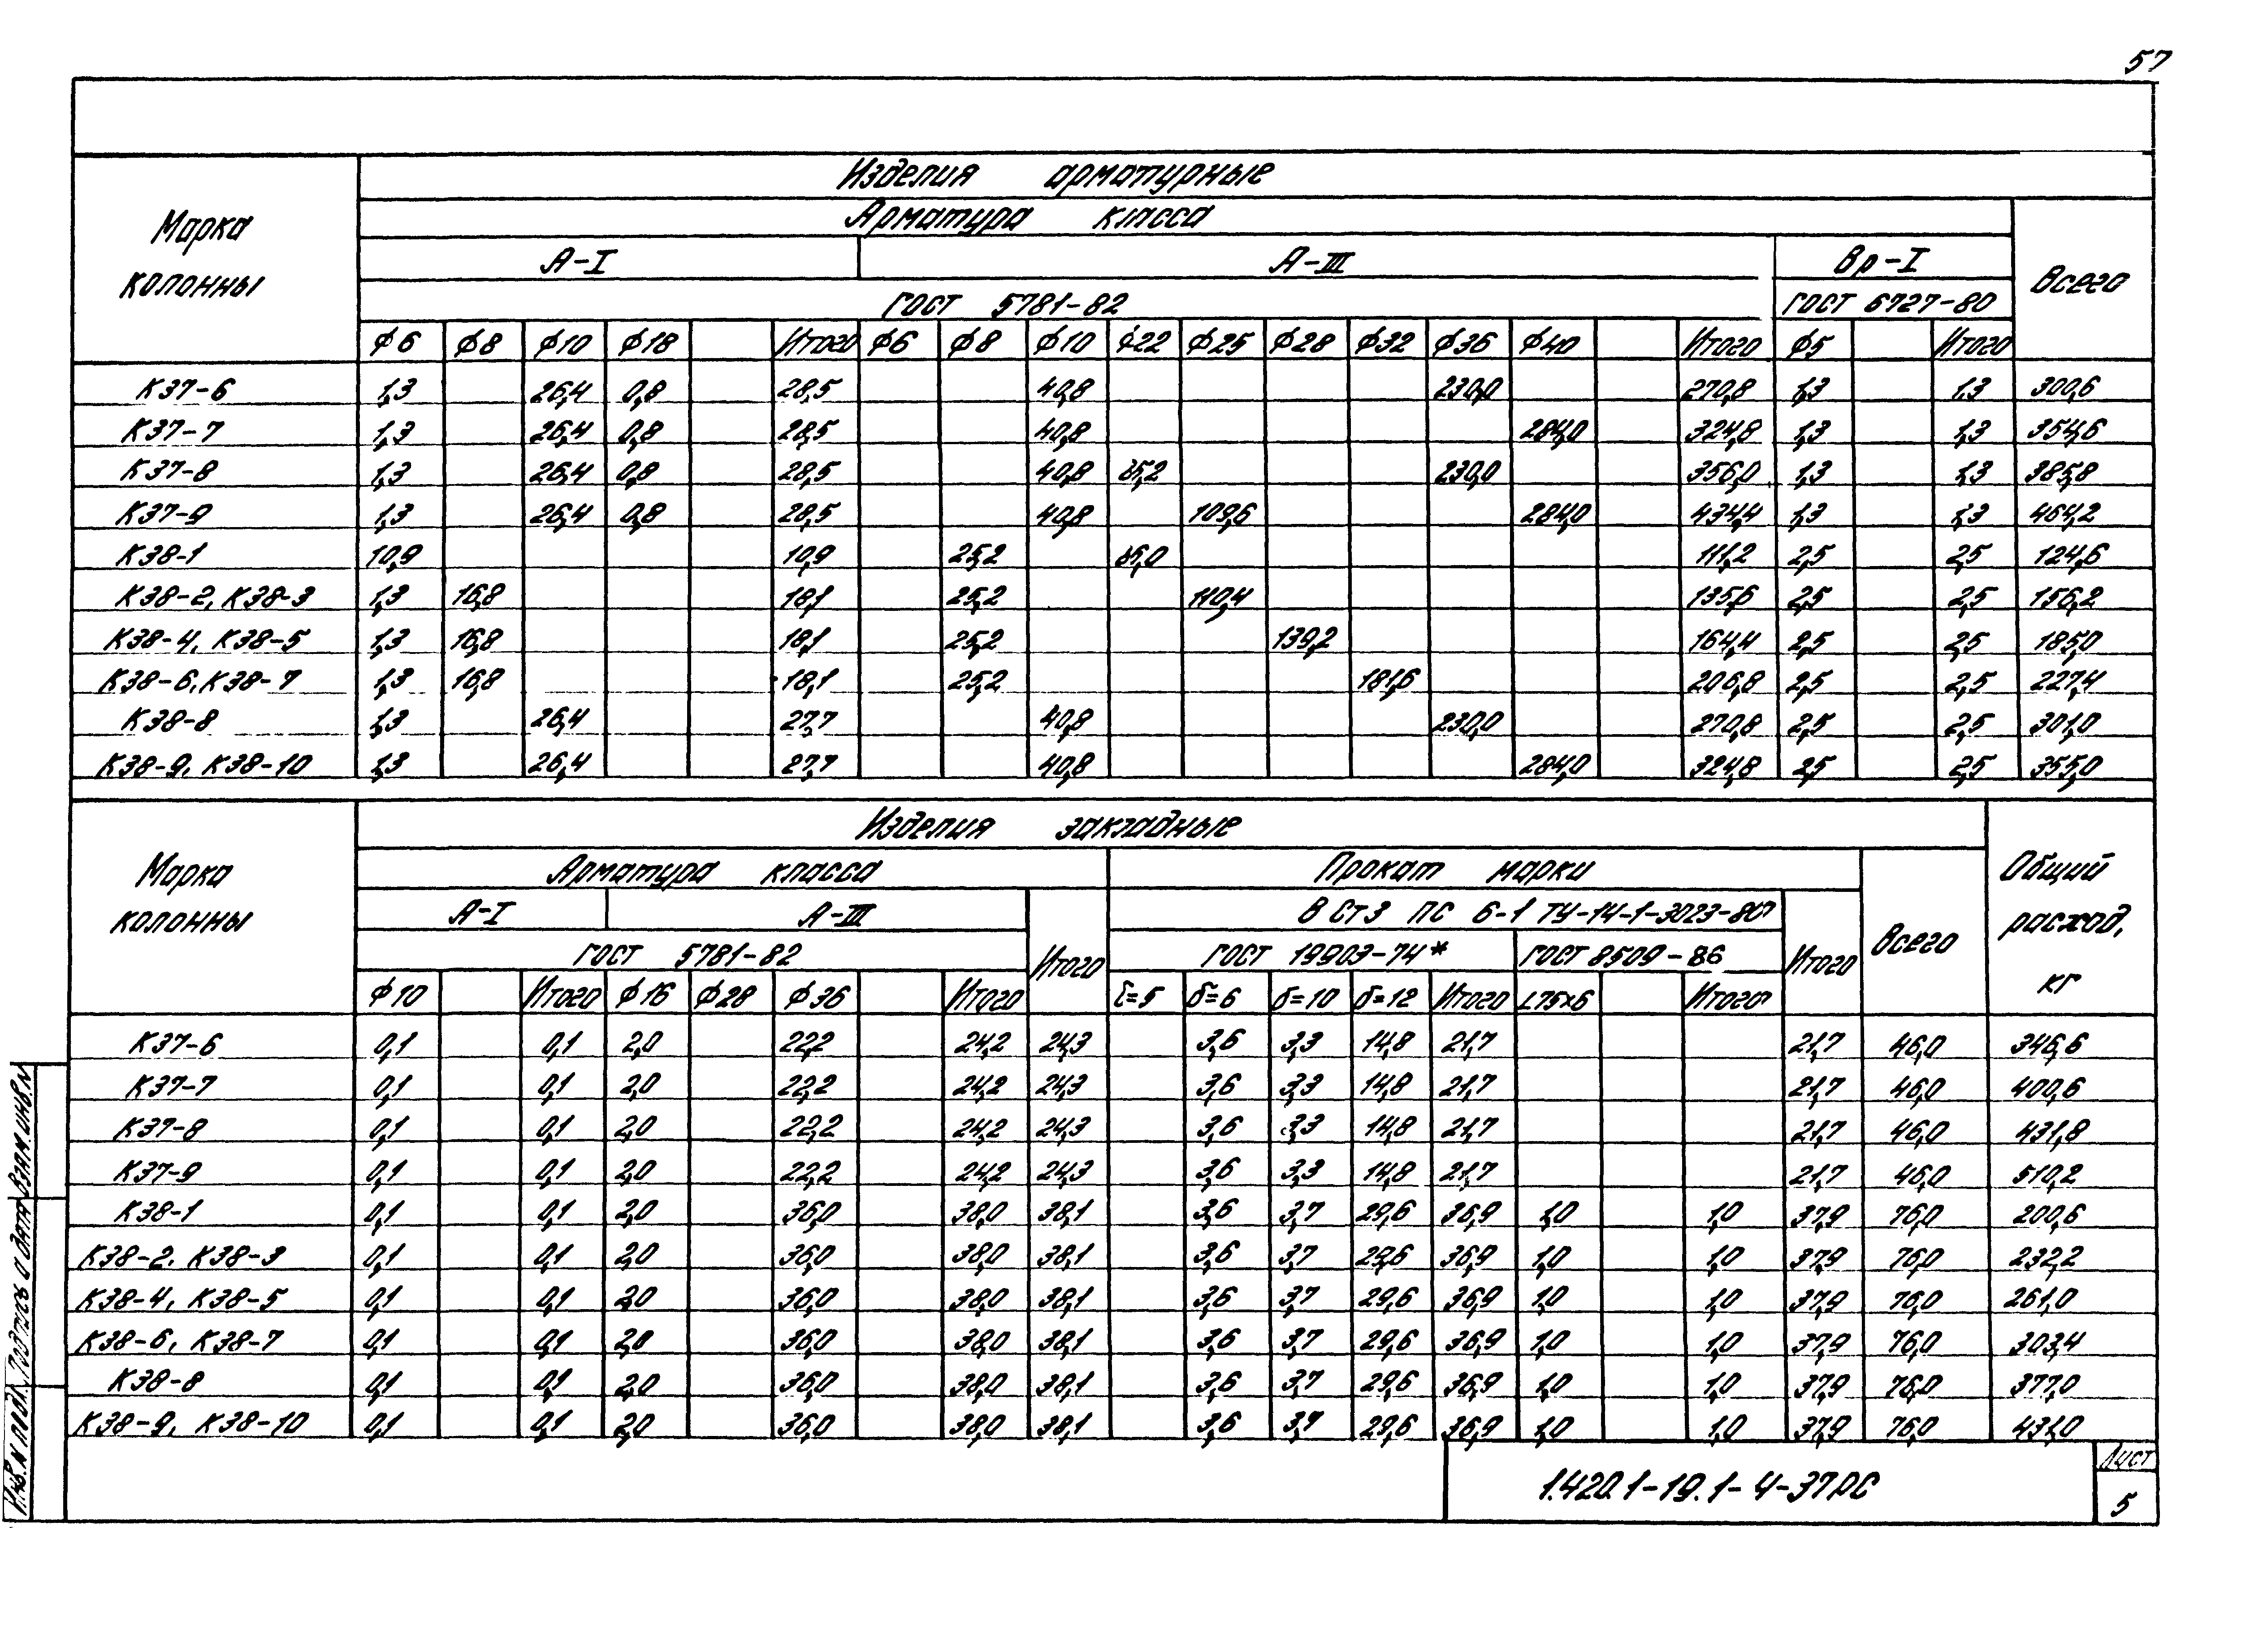 57
Изделия арматурные
Марка колонны
Арматура класса
Всего
А-I А-III Вр-I
ГОСТ 5781-82 ГОСТ 6727-80
ф6 ф8 ф10 ф18 Итого ф6 ф8 ф10 ф22 ф25 ф28 ф32 ф36 ф40 Итого ф5 Итого
К37-6 1,3 26,4 0,8 28,5 40,8 230,0 270,8 1,3 1,3 300,6
К37-7 1,3 26,4 0,8 28,5 40,8 284,0 324,8 1,3 1,3 354,6
К37-8 1,3 26,4 0,8 28,5 40,8 85,2 230,0 356,0 1,3 1,3 385,8
К37-9 1,3 26,4 0,8 28,5 40,8 109,6 284,0 434,4 1,3 1,3 464,2
К38-1 10,9 10,9 25,2 86,0 111,2 2,5 2,5 124,6
К38-2, К38-3 1,3 16,8 18,1 25,2 110,4 135,6 2,5 2,5 156,2
К38-4, К38-5 1,3 16,8 18,1 25,2 139,2 164,4 2,5 2,5 185,0
К38-6, К38-7 1,3 16,8 18,1 25,2 181,6 206,8 2,5 2,5 227,4
К38-8 1,3 26,4 27,7 40,8 230,0 270,8 2,5 2,5 301,0
К38-9, К38-10 1,3 26,4 27,7 40,8 284,0 324,8 2,5 2,5 355,0
Изделия закладные
Марка колонны
Арматура класса Прокат марки
Всего
Общий расход, кг
А-I А-III Итого В Ст3 ПС 6-1 ТУ-14-1-3023-80 Итого
ГОСТ 5781-82 ГОСТ 19903-74* ГОСТ 8509-86
ф10 Итого ф16 ф28 ф36 Итого δ=5 δ=6 δ=10 δ=12 Итого L75х6 Итого
К37-6 0,1 0,1 2,0 22,2 24,2 24,3 3,6 3,3 14,8 21,7 21,7 46,0 346,6
К37-7 0,1 0,1 2,0 22,2 24,2 24,3 3,6 3,3 14,8 21,7 21,7 46,0 400,6
К37-8 0,1 0,1 2,0 22,2 24,2 24,3 3,6 3,3 14,8 21,7 21,7 46,0 431,8
К37-9 0,1 0,1 2,0 22,2 24,2 24,3 3,6 3,3 14,8 21,7 21,7 46,0 510,2
К38-1 0,1 0,1 2,0 36,0 38,0 38,1 3,6 3,7 29,6 36,9 1,0 1,0 37,9 76,0 200,6
К38-2, К38-3 0,1 0,1 2,0 36,0 38,0 38,1 3,6 3,7 29,6 36,9 1,0 1,0 37,9 76,0 232,2
К38-4, К38-5 0,1 0,1 2,0 36,0 38,0 38,1 3,6 3,7 29,6 36,9 1,0 1,0 37,9 76,0 261,0
К38-6, К38-7 0,1 0,1 2,0 36,0 38,0 38,1 3,6 3,7 29,6 36,9 1,0 1,0 37,9 76,0 303,4
К38-8 0,1 0,1 2,0 36,0 38,0 38,1 3,6 3,7 29,6 36,9 1,0 1,0 37,9 76,0 377,0
К38-9, К38-10 0,1 0,1 2,0 36,0 38,0 38,1 3,6 3,7 29,6 36,9 1,0 1,0 37,9 76,0 431,0
1.420.1-19.1-4-37РС
Лист
5
Инв.N подл. Подпись и дата Взам.инв.N